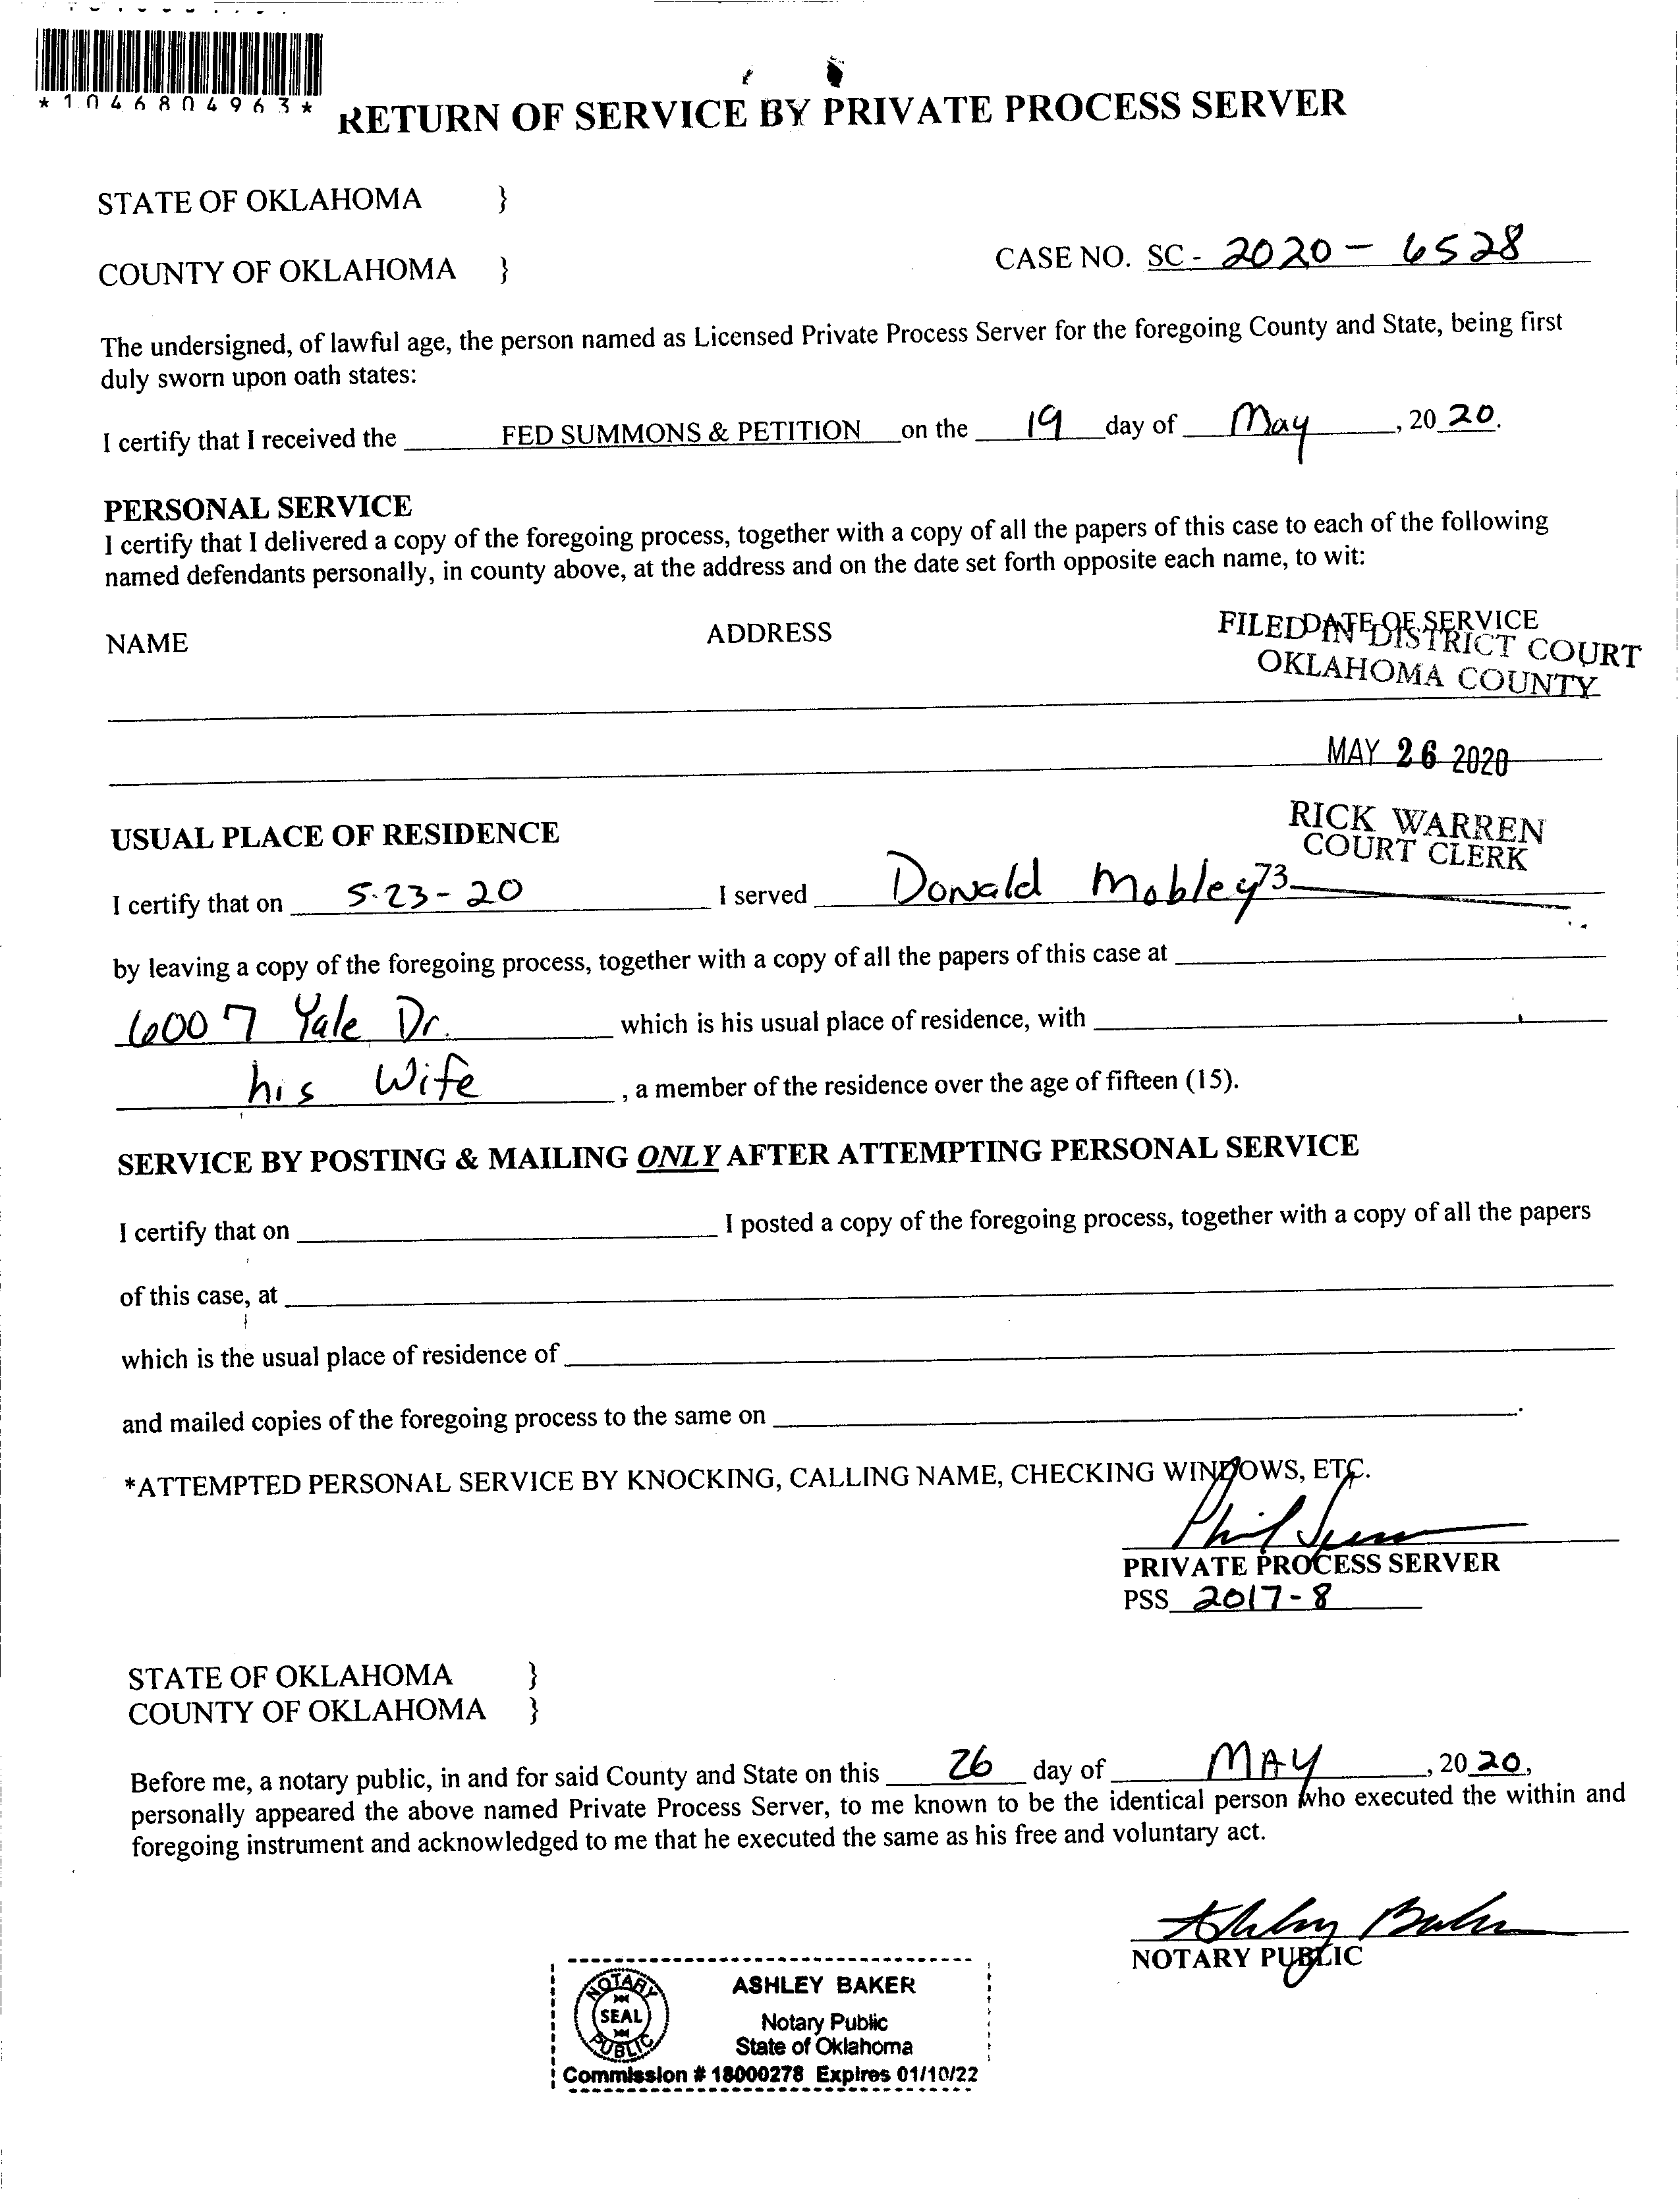 *1046804963*
RETURN OF SERVICE BY PRIVATE PROCESS SERVER
STATE OF OKLAHOMA }
COUNTY OF OKLAHOMA } CASE NO. SC - 2020 - 6528
The undersigned, of lawful age, the person named as Licensed Private Process Server for the foregoing County and State, being first
duly sworn upon oath states:
I certify that I received the FED SUMMONS & PETITION on the 19 day of May, 2020.
PERSONAL SERVICE
I certify that I delivered a copy of the foregoing process, together with a copy of all the papers of this case to each of the following
named defendants personally, in county above, at the address and on the date set forth opposite each name, to wit:
NAME ADDRESS DATE OF SERVICE
FILED IN DISTRICT COURT
OKLAHOMA COUNTY
MAY 26 2020
RICK WARREN
COURT CLERK
USUAL PLACE OF RESIDENCE
I certify that on 5-23-20 I served Donald Mobley 73
by leaving a copy of the foregoing process, together with a copy of all the papers of this case at
6007 Yale Dr. which is his usual place of residence, with
his Wife, a member of the residence over the age of fifteen (15).
SERVICE BY POSTING & MAILING ONLY AFTER ATTEMPTING PERSONAL SERVICE
I certify that on I posted a copy of the foregoing process, together with a copy of all the papers
of this case, at
which is the usual place of residence of
and mailed copies of the foregoing process to the same on .
*ATTEMPTED PERSONAL SERVICE BY KNOCKING, CALLING NAME, CHECKING WINDOWS, ETC.
Phil
PRIVATE PROCESS SERVER
PSS 2017-8
STATE OF OKLAHOMA }
COUNTY OF OKLAHOMA }
Before me, a notary public, in and for said County and State on this 26 day of MAY, 2020,
personally appeared the above named Private Process Server, to me known to be the identical person who executed the within and
foregoing instrument and acknowledged to me that he executed the same as his free and voluntary act.
Ashley Baker
NOTARY PUBLIC
NOTARY SEAL PUBLIC
ASHLEY BAKER
Notary Public
State of Oklahoma
Commission # 18000278 Expires 01/10/22